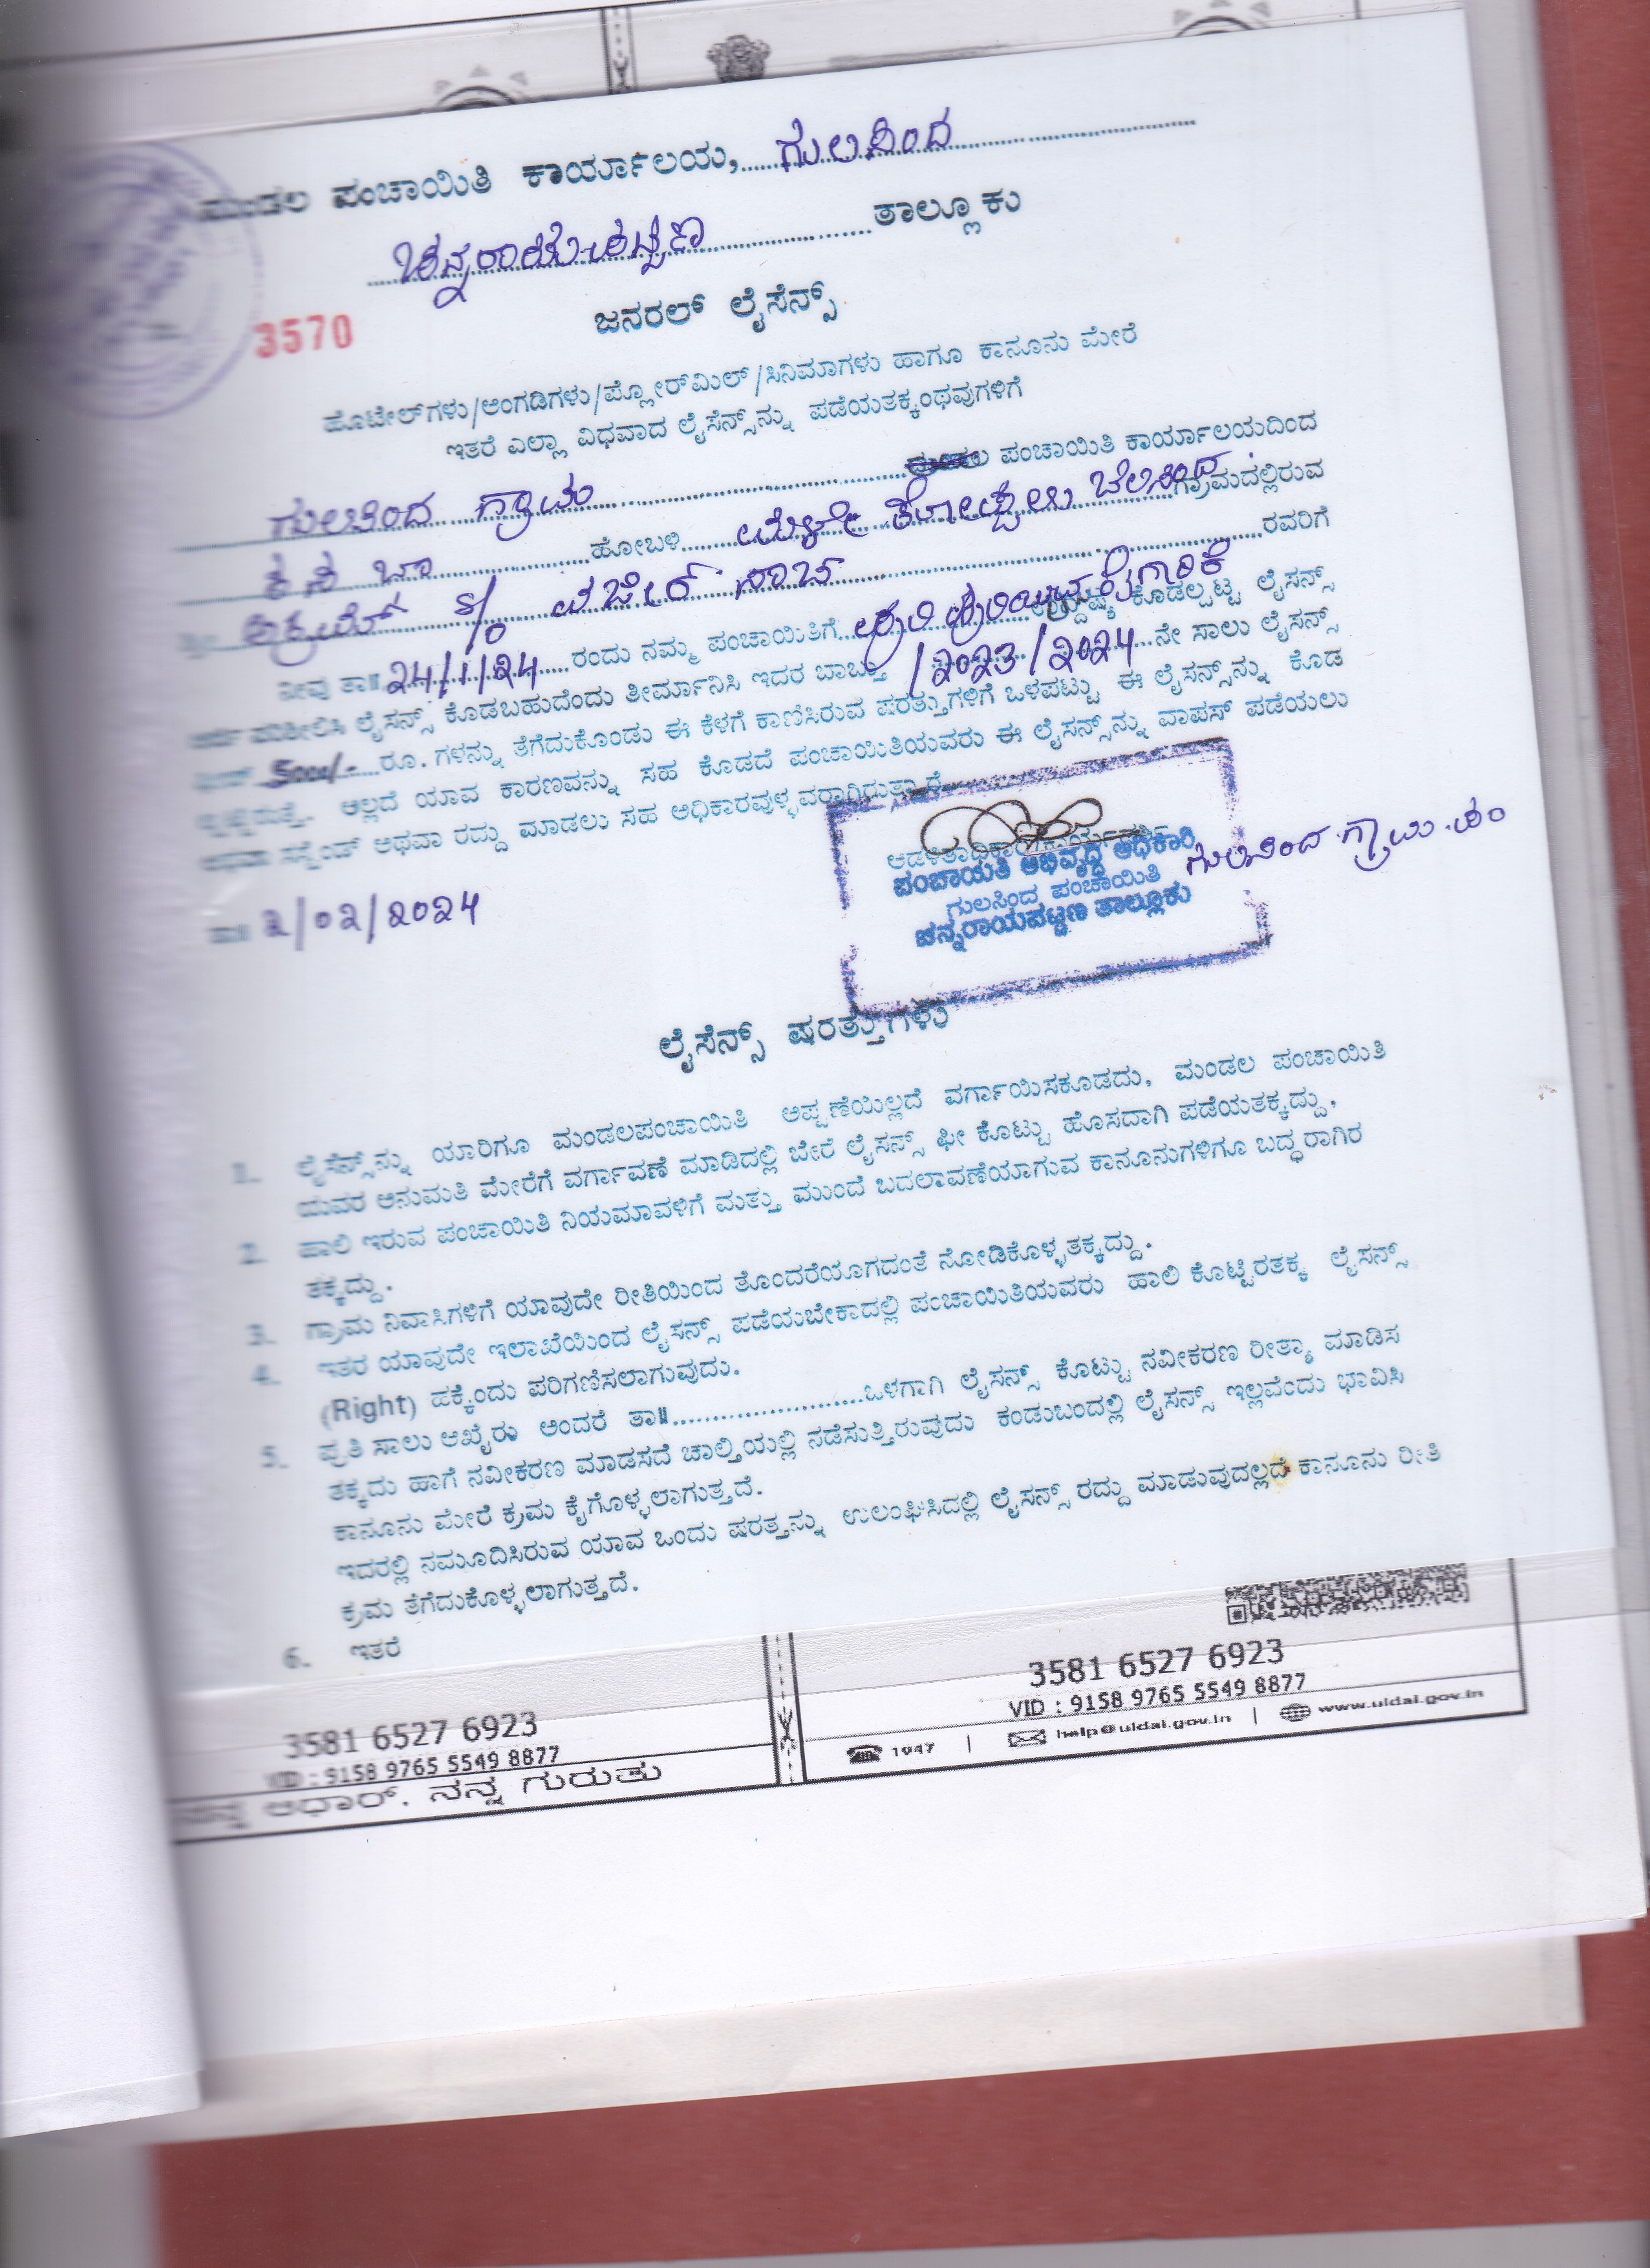 ಮಂಡಲ ಪಂಚಾಯಿತಿ ಕಾರ್ಯಾಲಯ, ಗುಲಸಿಂದ
ಚನ್ನರಾಯಪಟ್ಟಣ ತಾಲ್ಲೂಕು
ಜನರಲ್ ಲೈಸೆನ್ಸ್
3570
ಹೊಟೇಲ್‌ಗಳು/ಅಂಗಡಿಗಳು/ಪ್ಲೋರ್‌ಮಿಲ್/ಸಿನಿಮಾಗಳು ಹಾಗೂ ಕಾನೂನು ಮೇರೆ
ಇತರೆ ಎಲ್ಲಾ ವಿಧವಾದ ಲೈಸೆನ್ಸ್‌ನ್ನು ಪಡೆಯತಕ್ಕಂಥವುಗಳಿಗೆ
ಗುಲಸಿಂದ ಗ್ರಾಮ ಪಂಚಾಯಿತಿ ಕಾರ್ಯಾಲಯದಿಂದ
ಕಸಬಾ ಹೋಬಳಿ ಗ್ರಾಮದಲ್ಲಿರುವ
S/o ವಜೀರ್ ಸಾಬ್ ರವರಿಗೆ
ನೀವು ತಾ॥ 24/1/24 ರಂದು ನಮ್ಮ ಪಂಚಾಯಿತಿಗೆ ಕೊಡಲ್ಪಟ್ಟ ಲೈಸೆನ್ಸ್
ಲೈಸೆನ್ಸ್ ಕೊಡಬಹುದೆಂದು ತೀರ್ಮಾನಿಸಿ ಇದರ ಬಾಬ್ತು /2023/2024 ನೇ ಸಾಲು ಲೈಸನ್ಸ್
5000/- ರೂ. ಗಳನ್ನು ತೆಗೆದುಕೊಂಡು ಈ ಕೆಳಗೆ ಕಾಣಿಸಿರುವ ಷರತ್ತುಗಳಿಗೆ ಒಳಪಟ್ಟು ಈ ಲೈಸನ್ಸ್‌ನ್ನು ಕೊಡ
ಅಲ್ಲದೆ ಯಾವ ಕಾರಣವನ್ನು ಸಹ ಕೊಡದೆ ಪಂಚಾಯಿತಿಯವರು ಈ ಲೈಸನ್ಸ್‌ನ್ನು ವಾಪಸ್ ಪಡೆಯಲು
ಅಥವಾ ಸಸ್ಪೆಂಡ್ ಅಥವಾ ರದ್ದು ಮಾಡಲು ಸಹ ಅಧಿಕಾರವುಳ್ಳವರಾಗಿರುತ್ತಾರೆ
ಪಂಚಾಯತಿ ಅಭಿವೃದ್ಧಿ ಅಧಿಕಾರಿ
ಗುಲಸಿಂದ ಪಂಚಾಯಿತಿ
ಚನ್ನರಾಯಪಟ್ಟಣ ತಾಲ್ಲೂಕು
ಗುಲಸಿಂದ ಗ್ರಾಮ ಪಂ
ತಾ॥ 2/02/2024
ಲೈಸೆನ್ಸ್ ಷರತ್ತುಗಳು
1. ಲೈಸೆನ್ಸ್‌ನ್ನು ಯಾರಿಗೂ ಮಂಡಲಪಂಚಾಯಿತಿ ಅಪ್ಪಣೆಯಿಲ್ಲದೆ ವರ್ಗಾಯಿಸಕೂಡದು, ಮಂಡಲ ಪಂಚಾಯಿತಿ
ಯವರ ಅನುಮತಿ ಮೇರೆಗೆ ವರ್ಗಾವಣೆ ಮಾಡಿದಲ್ಲಿ ಬೇರೆ ಲೈಸನ್ಸ್ ಫೀ ಕೊಟ್ಟು ಹೊಸದಾಗಿ ಪಡೆಯತಕ್ಕದ್ದು.
2. ಹಾಲಿ ಇರುವ ಪಂಚಾಯಿತಿ ನಿಯಮಾವಳಿಗೆ ಮತ್ತು ಮುಂದೆ ಬದಲಾವಣೆಯಾಗುವ ಕಾನೂನುಗಳಿಗೂ ಬದ್ಧರಾಗಿರ
ತಕ್ಕದ್ದು.
3. ಗ್ರಾಮ ನಿವಾಸಿಗಳಿಗೆ ಯಾವುದೇ ರೀತಿಯಿಂದ ತೊಂದರೆಯಾಗದಂತೆ ನೋಡಿಕೊಳ್ಳತಕ್ಕದ್ದು.
4. ಇತರ ಯಾವುದೇ ಇಲಾಖೆಯಿಂದ ಲೈಸನ್ಸ್ ಪಡೆಯಬೇಕಾದಲ್ಲಿ ಪಂಚಾಯಿತಿಯವರು ಹಾಲಿ ಕೊಟ್ಟಿರತಕ್ಕ ಲೈಸನ್ಸ್
(Right) ಹಕ್ಕೆಂದು ಪರಿಗಣಿಸಲಾಗುವುದು.
5. ಪ್ರತಿ ಸಾಲು ಆಖೈರು ಅಂದರೆ ತಾ॥........................ಒಳಗಾಗಿ ಲೈಸನ್ಸ್ ಕೊಟ್ಟು ನವೀಕರಣ ರೀತ್ಯಾ ಮಾಡಿಸ
ತಕ್ಕದು ಹಾಗೆ ನವೀಕರಣ ಮಾಡಿಸದೆ ಚಾಲ್ತಿಯಲ್ಲಿ ನಡೆಸುತ್ತಿರುವುದು ಕಂಡುಬಂದಲ್ಲಿ ಲೈಸನ್ಸ್ ಇಲ್ಲವೆಂದು ಭಾವಿಸಿ
ಕಾನೂನು ಮೇರೆ ಕ್ರಮ ಕೈಗೊಳ್ಳಲಾಗುತ್ತದೆ.
ಇದರಲ್ಲಿ ನಮೂದಿಸಿರುವ ಯಾವ ಒಂದು ಷರತ್ತನ್ನು ಉಲಂಘಿಸಿದಲ್ಲಿ ಲೈಸನ್ಸ್ ರದ್ದು ಮಾಡುವುದಲ್ಲದೆ ಕಾನೂನು ರೀತಿ
ಕ್ರಮ ತೆಗೆದುಕೊಳ್ಳಲಾಗುತ್ತದೆ.
6. ಇತರೆ
3581 6527 6923
VID : 9158 9765 5549 8877
ನನ್ನ ಆಧಾರ್, ನನ್ನ ಗುರುತು
3581 6527 6923
VID : 9158 9765 5549 8877
1947 | help@uidai.gov.in | www.uidai.gov.in